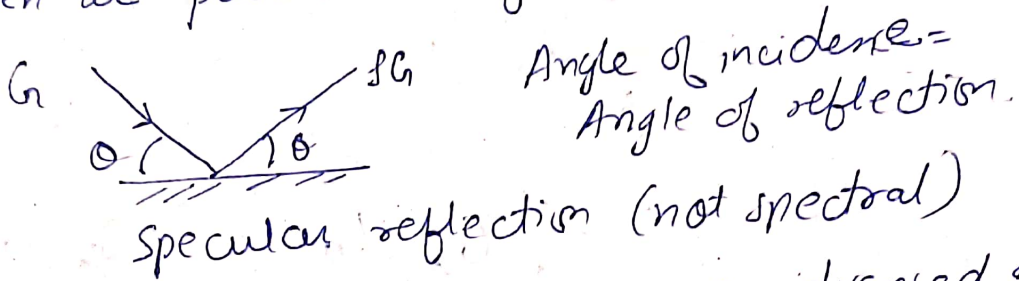 G
ρG
Angle of incidence =
Angle of reflection.
θ
θ
Specular reflection (not spectral)